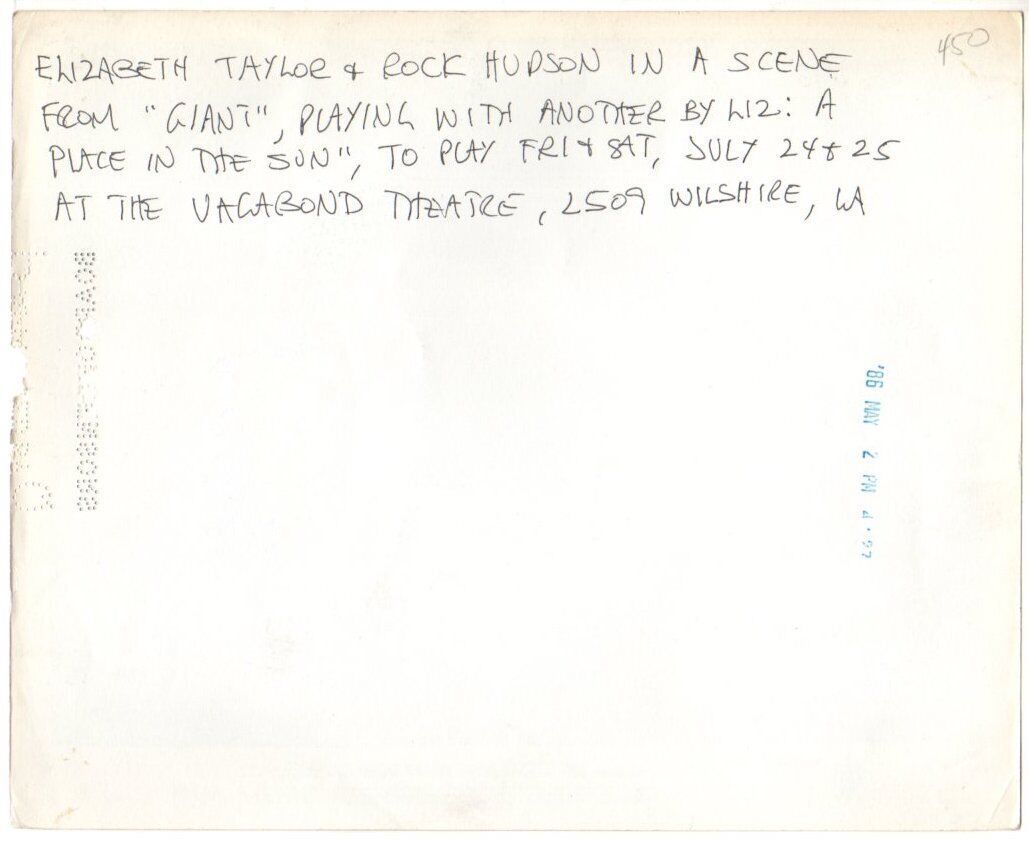 450
ELIZABETH TAYLOR & ROCK HUDSON IN A SCENE
FROM "GIANT", PLAYING WITH ANOTHER BY LIZ: A
PLACE IN THE SUN", TO PLAY FRI & SAT, JULY 24 & 25
AT THE VAGABOND THEATRE, 2509 WILSHIRE, LA
'86 MAY 2 PM